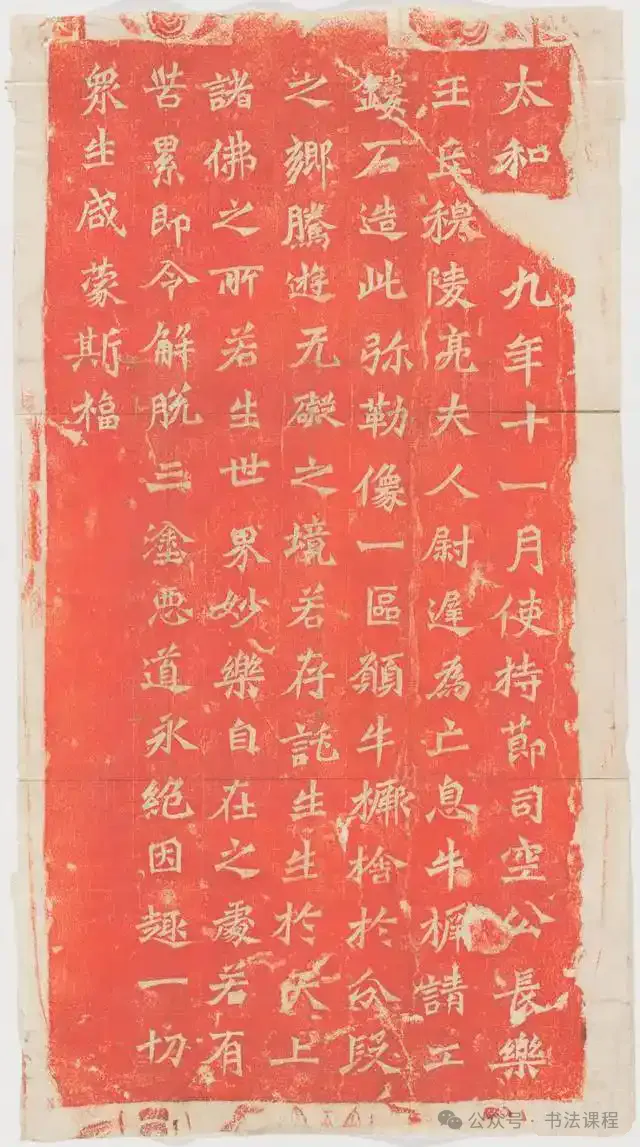 太和九年十一月使持節司空公長樂
王丘穆陵亮夫人尉遲為亡息牛橛請工
鏤石造此弥勒像一區願牛橛捨於分段
之鄉騰遊无礙之境若存託生生於天上
諸佛之所若生世界妙樂自在之處若有
苦累即令解脫三塗惡道永絕因趣一切
眾生咸蒙斯福
公众号 · 书法课程